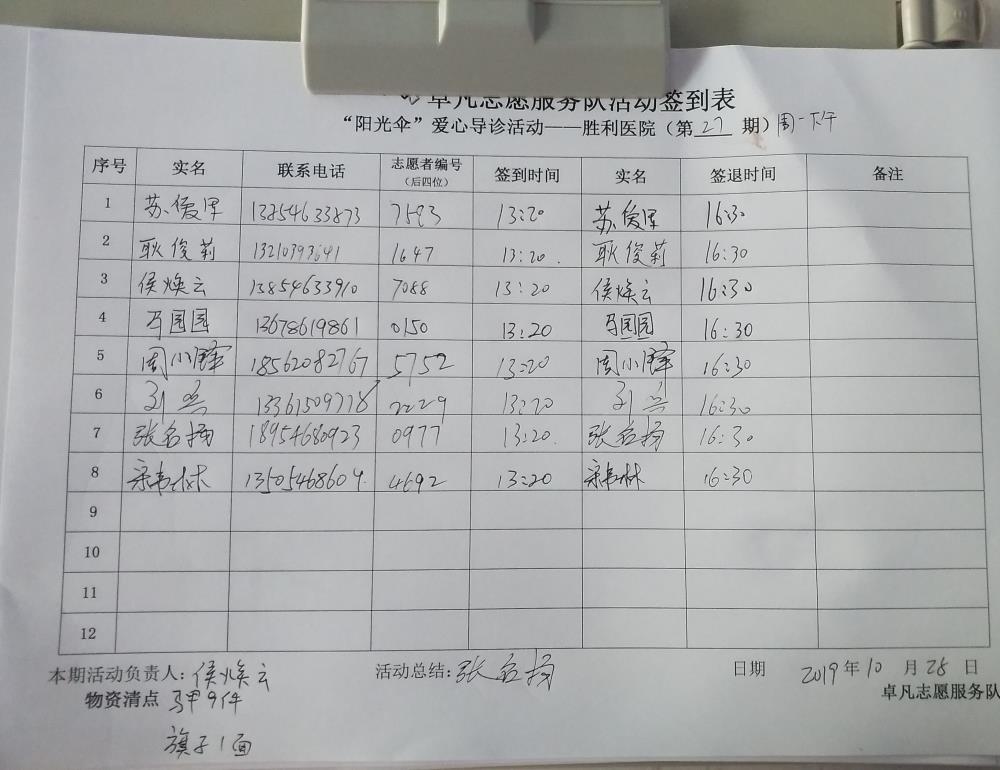 卓凡志愿服务队活动签到表
“阳光伞”爱心导诊活动——胜利医院（第 27 期）周一下午
序号 实名 联系电话 志愿者编号（后四位） 签到时间 实名 签退时间 备注
1 苏爱军 13854633873 7583 13:20 苏爱军 16:30
2 耿俊莉 13210393641 1647 13:20. 耿俊莉 16:30
3 侯焕云 13854633910 7088 13:20 侯焕云 16:30
4 马园园 13678619861 0150 13:20 马园园 16:30
5 周小峰 18562082767 5752 13:20 周小峰 16:30
6 刘兵 13361509778 2229 13:20 刘兵 16:30
7 张名扬 18954680923 0977 13:20. 张名扬 16:30
8 宋书林 13505468609. 4692 13:20 宋书林 16:30
9
10
11
12
本期活动负责人: 侯焕云 活动总结: 张名扬 日期 2019年10月28日
物资清点 马甲9件 卓凡志愿服务队
旗子1面